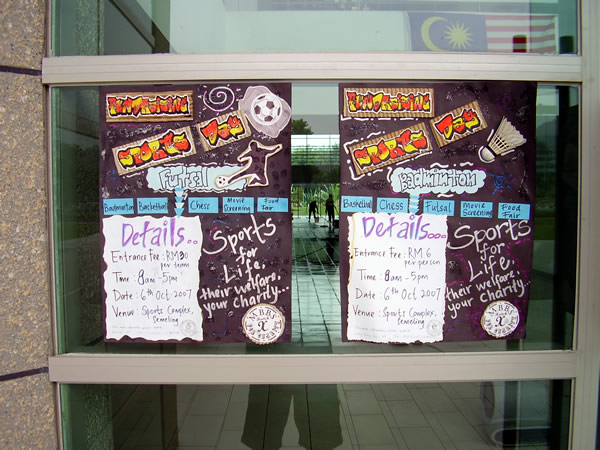 FUNDRAISING
SPORTS DAY
Futsal
Badminton Basketball Chess Movie Screening Food Fair
Details..
Entrance Fee: RM 30
per team
Time: 8am - 5pm
Date: 6th Oct 2007
Venue: Sports Complex,
Semeling
Sports
for
Life,
their welfare,
your charity...
FUNDRAISING
SPORTS DAY
Badminton
Basketball Chess Futsal Movie Screening Food Fair
Details...
Entrance Fee: RM 6
per person
Time: 8am - 5pm
Date: 6th Oct 2007
Venue: Sports Complex,
Semeling
Sports
for
Life,
their welfare,
your charity...